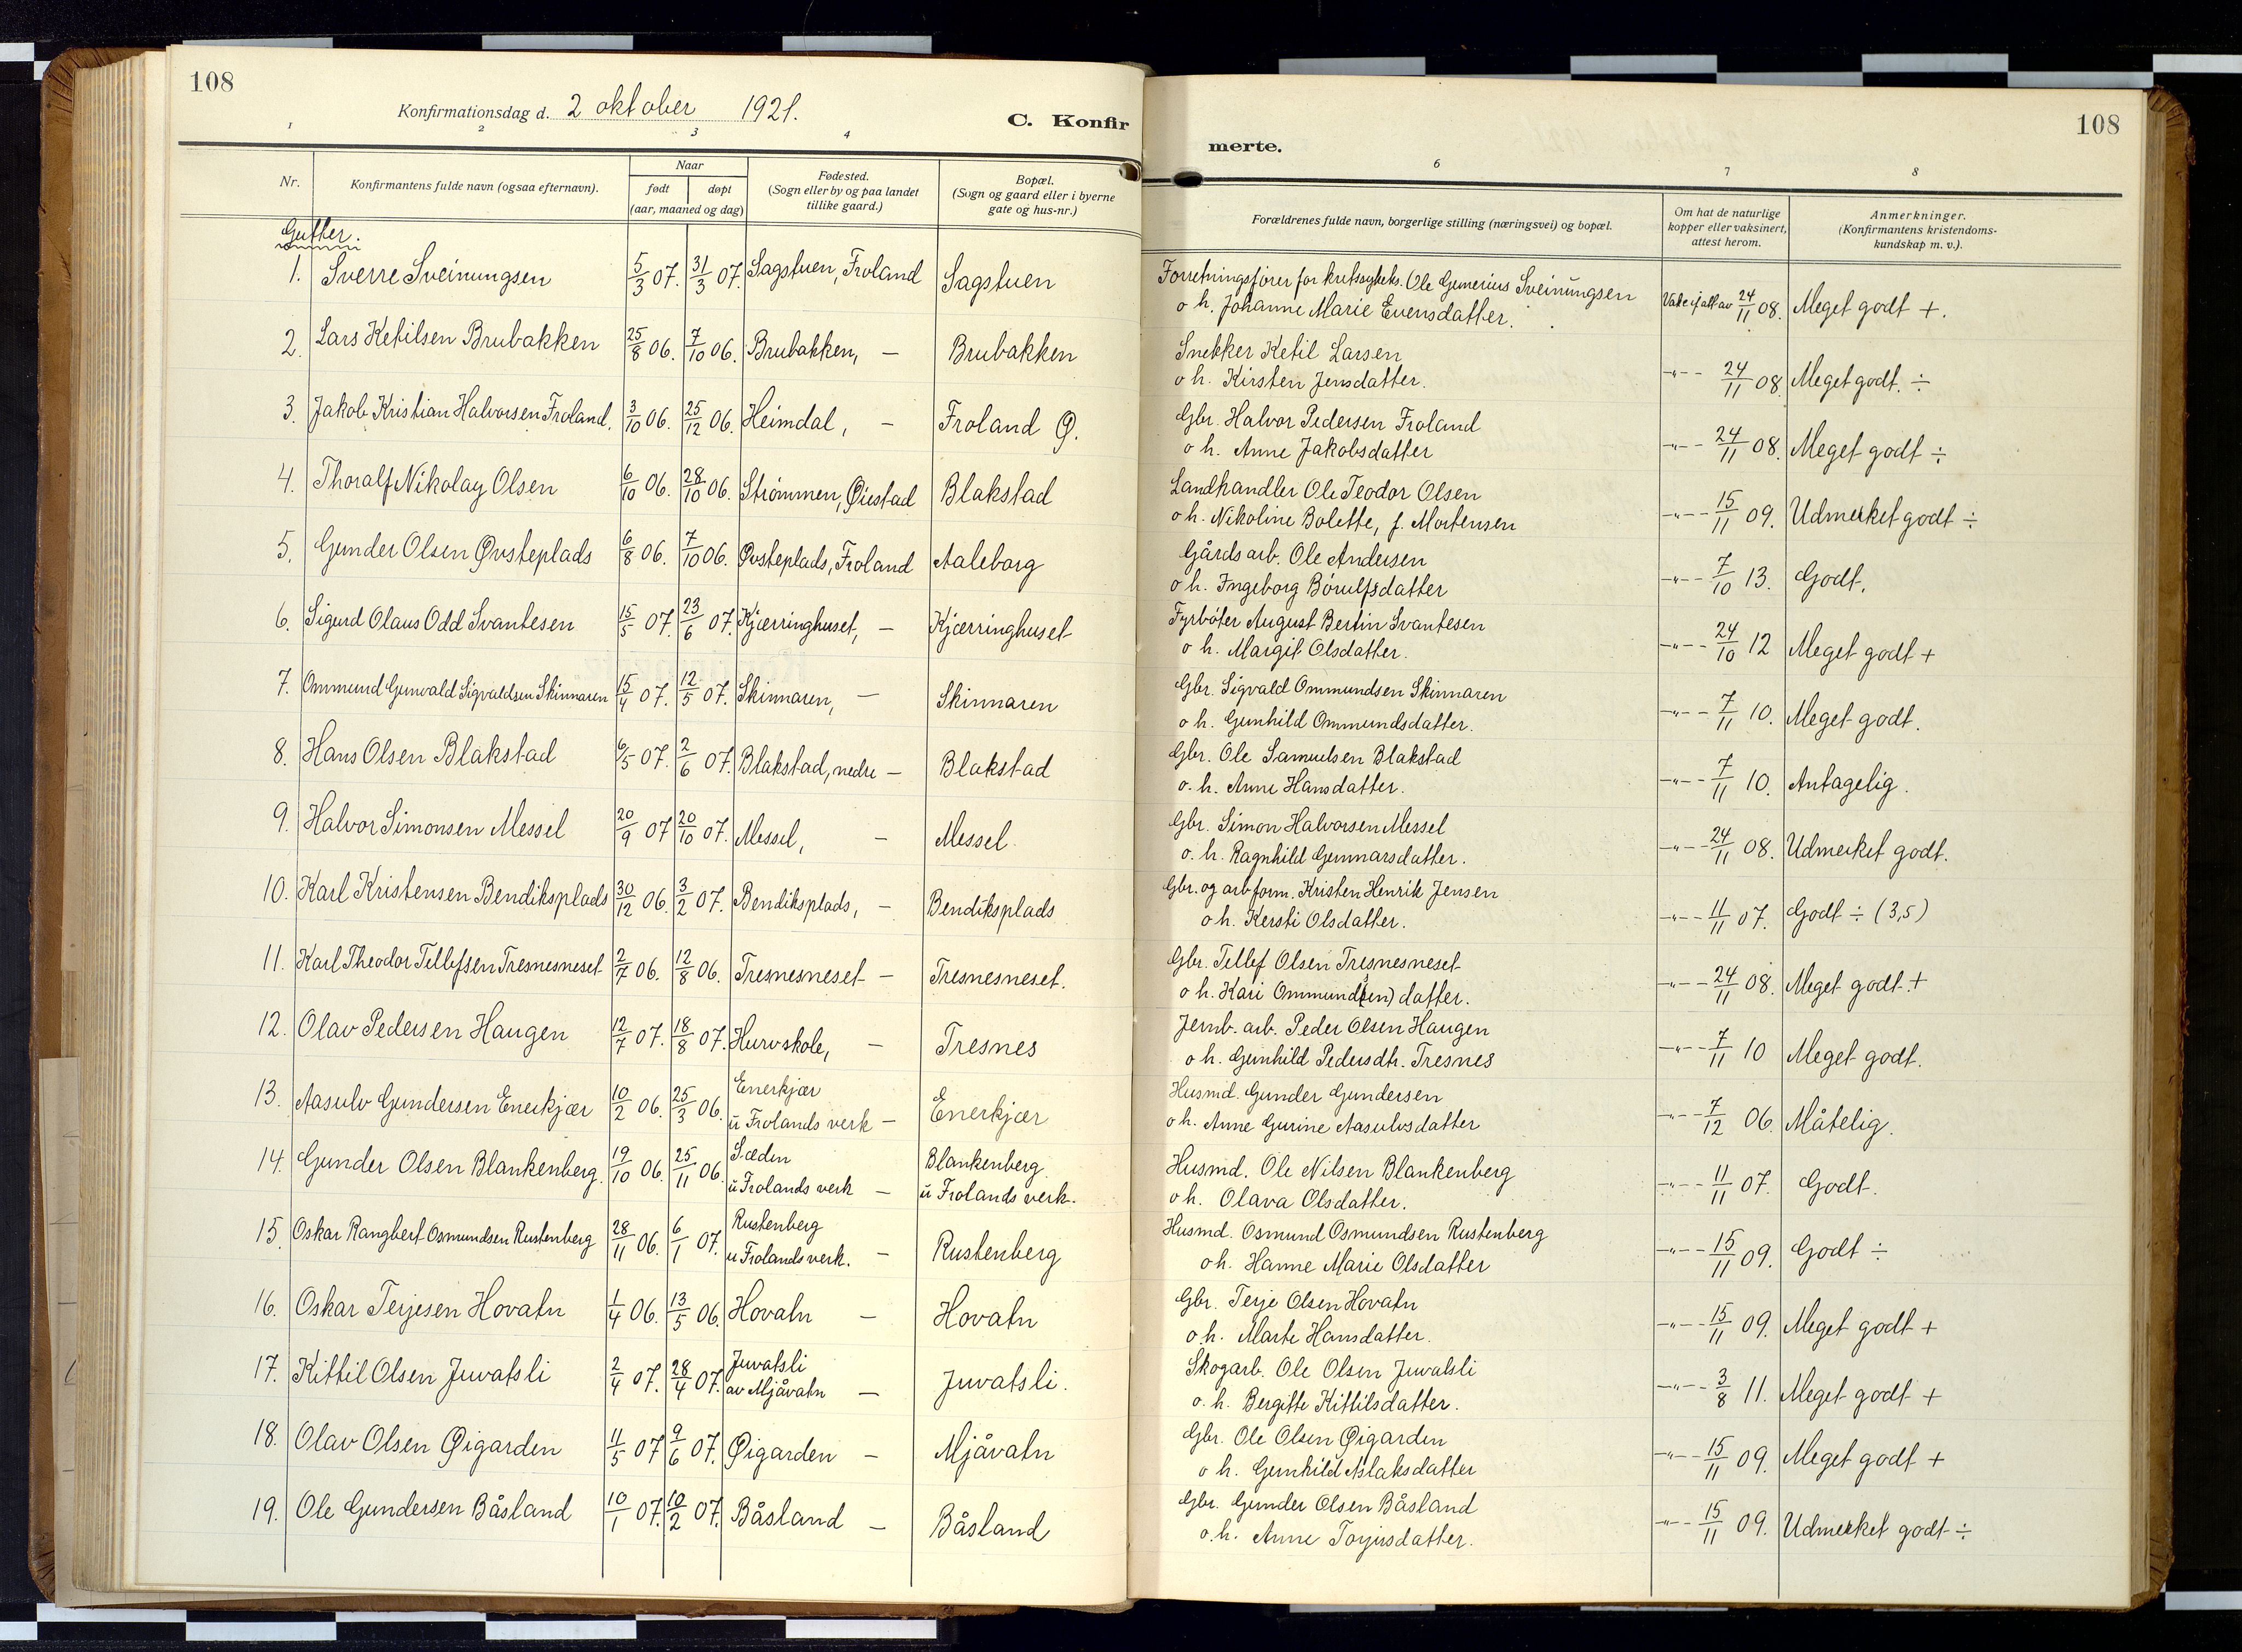 108
Konfirmationsdag d. 2 oktober 1921.
C. Konfir
merte.
108
1 2 3 4 6 7 8
Nr.
Konfirmantens fulde navn (ogsaa efternavn).
Naar
født døpt
(aar, maaned og dag)
Fødested.
(Sogn eller by og paa landet
tillike gaard.)
Bopæl.
(Sogn og gaard eller i byerne
gate og hus-nr.)
Forældrenes fulde navn, borgerlige stilling (næringsvei) og bopæl.
Om hat de naturlige
kopper eller vaksinert,
attest herom.
Anmerkninger.
(Konfirmantens kristendoms-
kundskap m. v.).
Gutter.
1. Sverre Sveinungsen 5/3 07. 31/3 07. Sagstuen, Froland Sagstuen
Forretningsfører for kretssykeks. Ole Gunerius Sveinungsen
o h. Johanne Marie Evensdatter. 24/11 08. Meget godt +.
2. Lars Ketilsen Brubakken 25/8 06. 7/10 06. Brubakken, — Brubakken
Snekker Ketil Larsen
o h. Kirsten Jensdatter. -"- - 24/11 08. Meget godt. ÷
3. Jakob Kristian Halvorsen Froland. 3/10 06. 25/12 06. Heimdal, - Froland Ø.
Gbr. Halvor Pedersen Froland
o h. Anne Jakobsdatter -"- - 24/11 08. Meget godt ÷
4. Thoralf Nikolay Olsen 6/10 06. 28/10 06. Strømmen, Øiestad Blakstad
Landhandler Ole Teodor Olsen
o h. Nikoline Bolette, f. Mortensen -"- - 15/11 09. Udmerket godt ÷
5. Gunder Olsen Øvsteplads 6/8 06. 7/10 06. Øvsteplads, Froland Aaleborg
Gårdsarb. Ole Andersen
o h. Ingeborg Börulfsdatter -"- - 7/10 13. Godt.
6. Sigurd Olaus Odd Svantesen 15/5 07. 23/6 07. Kjærringhuset, - Kjærringhuset
Fyrböter August Bertin Svantesen
o h. Margit Olsdatter. -"- - 24/10 12 Meget godt +
7. Ommund Gunvald Sigvaldsen Skinnaren 15/4 07. 12/5 07. Skinnaren, — Skinnaren
Gbr. Sigvald Ommundsen Skinnaren
o h. Gunhild Ommundsdatter. -"- - 7/11 10. Meget godt.
8. Hans Olsen Blakstad 6/5 07. 2/6 07. Blakstad, nedre — Blakstad
Gbr. Ole Samuelsen Blakstad
o. h. Anne Hansdatter. -"- - 7/11 10. Antagelig.
9. Halvor Simonsen Messel 20/9 07 20/10 07. Messel, — Messel
Gbr. Simon Halvorsen Messel
o. h. Ragnhild Gunnarsdatter. -"- - 24/11 08. Udmerket godt.
10. Karl Kristensen Bendiksplads 30/12 06. 3/2 07. Bendiksplads, — Bendiksplads
Gbr. og arbform. Kristen Henrik Jensen
o h. Kersti Olsdatter. -"- - 11/11 07. Godt ÷ (3,5)
11. Karl Theodor Tellefsen Tresnesneset 2/7 06. 12/8 06. Tresnesneset — Tresnesneset.
Gbr. Tellef Olsen Tresnesneset
o h. Kari Ommund(sen) datter. -"- - 24/11 08. Meget godt. +
12. Olav Pedersen Haugen 12/7 07. 18/8 07. Hurvskole, — Tresnes
Jernb. arb. Peder Olsen Haugen
o h. Gunhild Pedersdtr. Tresnes -"- - 7/11 10 Meget godt.
13. Aasulv Gundersen Enerkjær 10/2 06. 25/3 06. Enerkjær
u Frolands verk — Enerkjær
Husmd. Gunder Gundersen
o h. Anne Gurine Aasulvsdatter -"- - 7/12 06. Måtelig.
14. Gunder Olsen Blankenberg. 19/10 06. 25/11 06. Sæden
u Frolands verk — Blankenberg
u Frolands verk.
Husmd. Ole Nilsen Blankenberg
o h. Olava Olsdatter. -"- - 11/11 07. Godt.
15. Oskar Rangbert Osmundsen Rustenberg 28/11 06. 6/1 07. Rustenberg
u Frolands verk. — Rustenberg
Husmd. Osmund Osmundsen Rustenberg
o h. Hanne Marie Olsdatter -"- - 15/11 09. Godt ÷
16. Oskar Terjesen Hovatn 1/4 06. 13/5 06. Hovatn — Hovatn
Gbr. Terje Olsen Hovatn
o. h. Marte Hansdatter. -"- - 15/11 09. Meget godt +
17. Kittil Olsen Juvatsli 2/4 07. 28/4 07. Juvatsli
av Mjåvatn — Juvatsli.
Skogarb. Ole Olsen Juvatsli
o. h. Bergitte Kittilsdatter. -"- - 3/8 11. Meget godt +
18. Olav Olsen Øigarden 11/5 07 9/6 07. Øigarden — Mjåvatn
Gbr. Ole Olsen Øigarden
o h. Gunhild Aslaksdatter -"- - 15/11 09. Meget godt +
19. Ole Gundersen Båsland 10/1 07. 10/2 07. Båsland — Båsland
Gbr. Gunder Olsen Båsland
o. h. Anne Torjusdatter. -"- - 15/11 09. Udmerket godt ÷